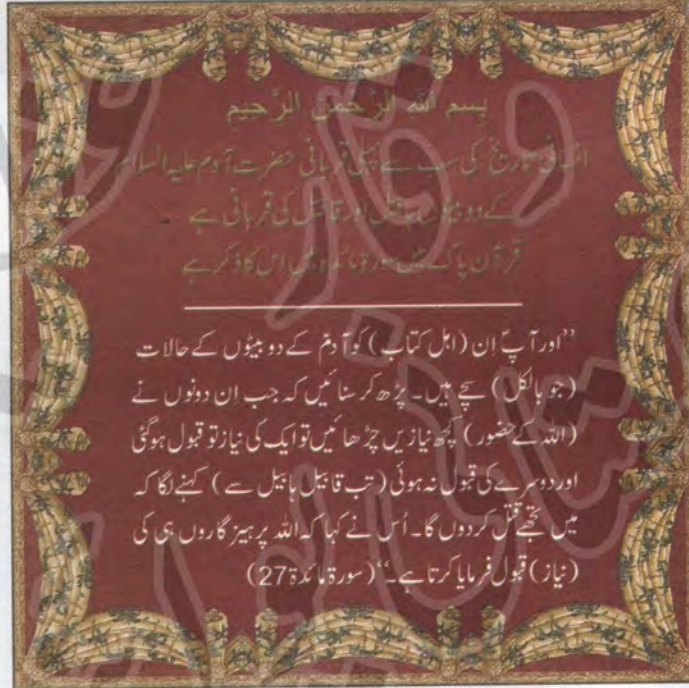 بِسم اللہ الرَّحمن الرَّحیم
انسانی تاریخ کی سب سے پہلی قربانی حضرت آدم علیہ السلام
کے دو بیٹوں ہابیل اور قابیل کی قربانی ہے
قرآن پاک میں سورۃ مائدہ میں اس کا ذکر ہے
’’اور آپؐ اِن (اہل کتاب) کو آدمؑ کے دو بیٹوں کے حالات
(جو بالکل) سچے ہیں۔ پڑھ کر سنائیں کہ جب اِن دونوں نے
(اللہ کے حضور) کچھ نیازیں چڑھائیں تو ایک کی نیاز تو قبول ہوگئی
اور دوسرے کی قبول نہ ہوئی (تب قابیل ہابیل سے) کہنے لگا کہ
میں تجھے قتل کردوں گا۔ اُس نے کہا کہ اللہ پرہیز گاروں ہی کی
(نیاز) قبول فرمایا کرتا ہے۔‘‘ (سورۃ مائدۃ 27)